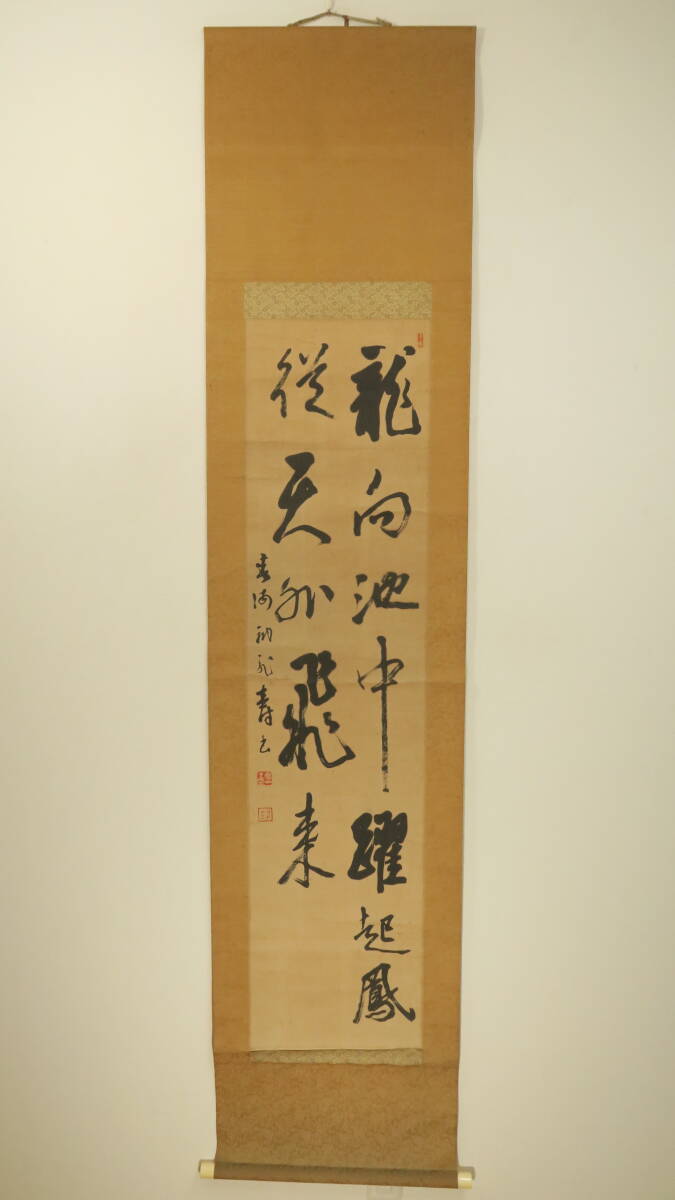 龍向池中躍起鳳
從天外飛来